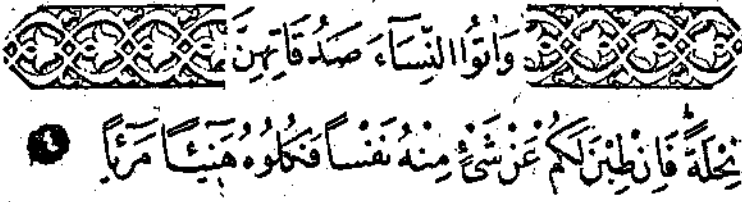 وَاٰتُوا النِّسَآءَ صَدُقَاتِهِنَّ
نِحْلَةًۜ فَاِنْ طِبْنَ لَكُمْ عَنْ شَيْءٍ مِنْهُ نَفْسًا فَكُلُوهُ هَن۪ٓيـًٔا مَر۪ٓيـًٔا ﴿٤﴾